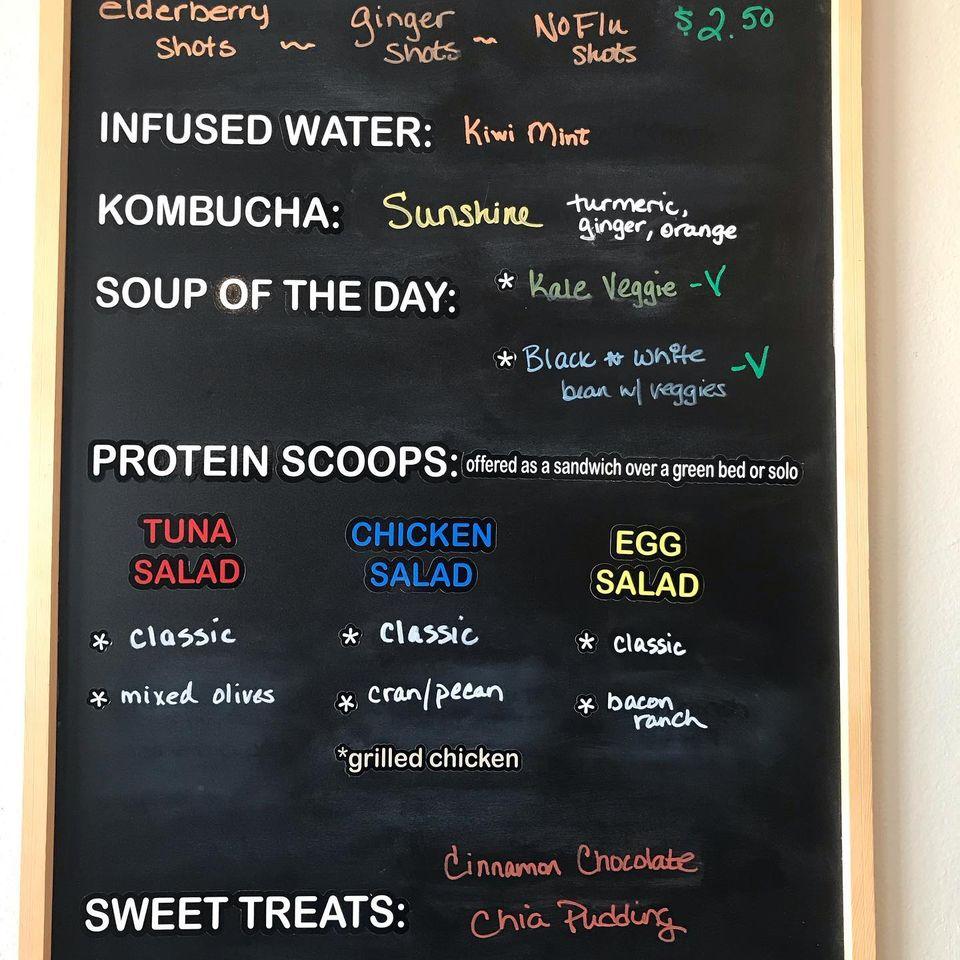 elderberry shots ~ ginger shots ~ NoFlu shots $2.50
INFUSED WATER: Kiwi Mint
KOMBUCHA: Sunshine turmeric, ginger, orange
SOUP OF THE DAY: * Kale Veggie -V
* Black & white bean w/ veggies -V
PROTEIN SCOOPS: offered as a sandwich over a green bed or solo
TUNA SALAD
* classic
* mixed olives
CHICKEN SALAD
* classic
* cran/pecan
*grilled chicken
EGG SALAD
* classic
* bacon ranch
SWEET TREATS: Cinnamon Chocolate Chia Pudding